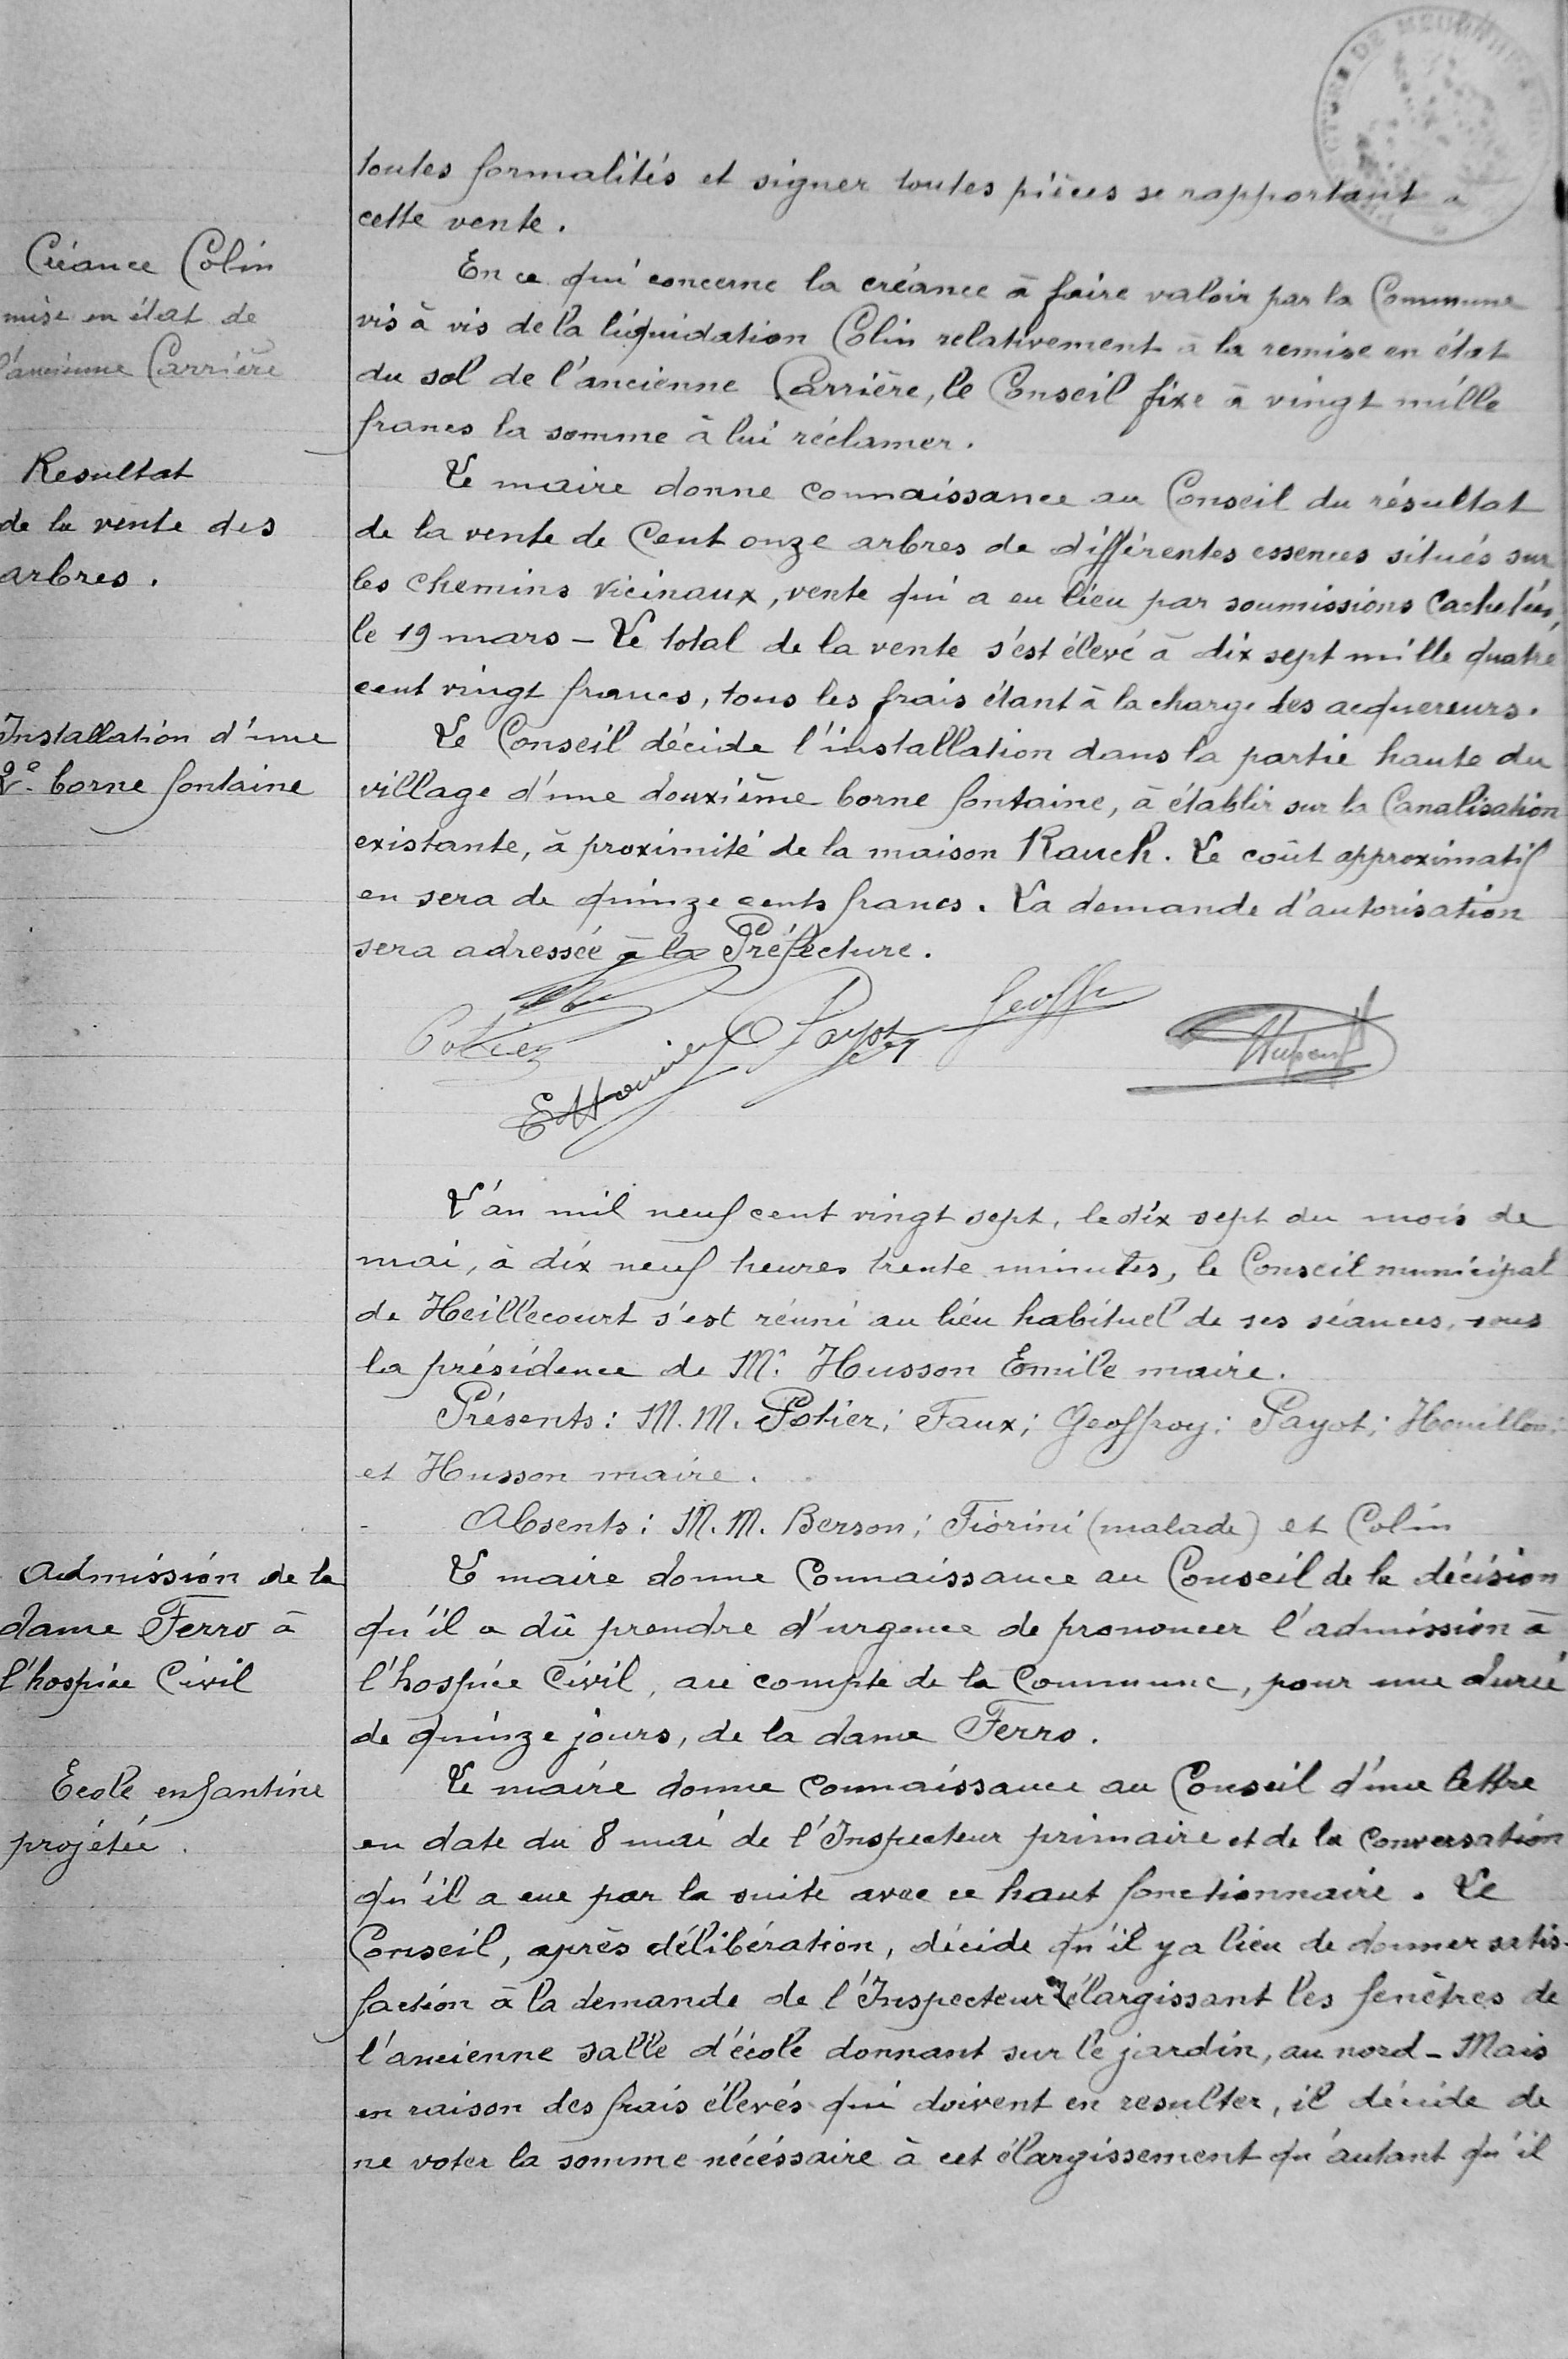 toutes formalités et signer toutes pièces se rapportant a
cette vente.
Créance Colin
mise en état de
l'ancienne Carrière
En ce qui concerne la créance à faire valoir par la Commune
vis à vis de la liquidation Colin relativement à la remise en état
du sol de l'ancienne Carrière, le Conseil fixe à vingt mille
francs la somme à lui réclamer.
Resultat
de la vente des
arbres.
Le maire donne connaissance au Conseil du résultat
de la vente de Cent onze arbres de différentes essences situés sur
les chemins vicinaux, vente qui a eu lieu par soumissions Cachetées,
le 19 mars - Le total de la vente s'est élevé à dix sept mille quatre
cent vingt francs, tous les frais étant à la charge des acquereurs.
Installation d'une
2e borne fontaine
Le Conseil décide l'installation dans la partie haute du
village d'une douxième borne fontaine, à établir sur la Canalisation
existante, à proximité de la maison Rauch. Le coût approximatif
en sera de quinze cents francs. La demande d'autorisation
sera adressée à la Préfecture.
Potier
Payot
Geoff
L'an mil neuf cent vingt sept, le dix sept du mois de
mai, à dix neuf heures trente minutes, le Conseil municipal
de Heillecourt s'est réuni au lieu habituel de ses séances, sous
la présidence de Mr Husson Emile maire.
Présents: M.M. Potier; Faux; Geoffroy; Payot; Houillon;
et Husson maire.
Absents: M.M. Berson; Fiorini (malade) et Colin
Admission de la
dame Ferro à
l'hospice Civil
Le maire donne Connaissance au Conseil de la décision
qu'il a dû prendre d'urgence de prononcer l'admission à
l'hospice Civil, au compte de la Commune, pour une durée
de quinze jours, de la dame Ferro.
Ecole enfantine
projétée.
Le maire donne connaissance au Conseil d'une lettre
en date du 8 mai de l'Inspecteur primaire et de la conversation
qu'il a eue par la suite avec ce haut fonctionnaire. Le
Conseil, après délibération, décide qu'il y a lieu de donner satis-
faction à la demande de l'Inspecteur en élargissant les fenêtres de
l'ancienne salle d'école donnant sur le jardin, au nord - Mais
en raison des frais élevés qui doivent en resulter, il décide de
ne voter la somme nécéssaire à cet élargissement qu'autant qu'il